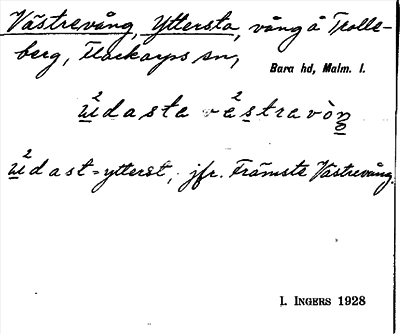 Västrevång, Yttersta, vång å Trolle-
berg, Flackarps sn,
Bara hd, Malm. l.
ʉ²dasta væ²stravòŋ
ʉ²dast = ytterst, jfr. Främste Västrevång.
I. INGERS 1928